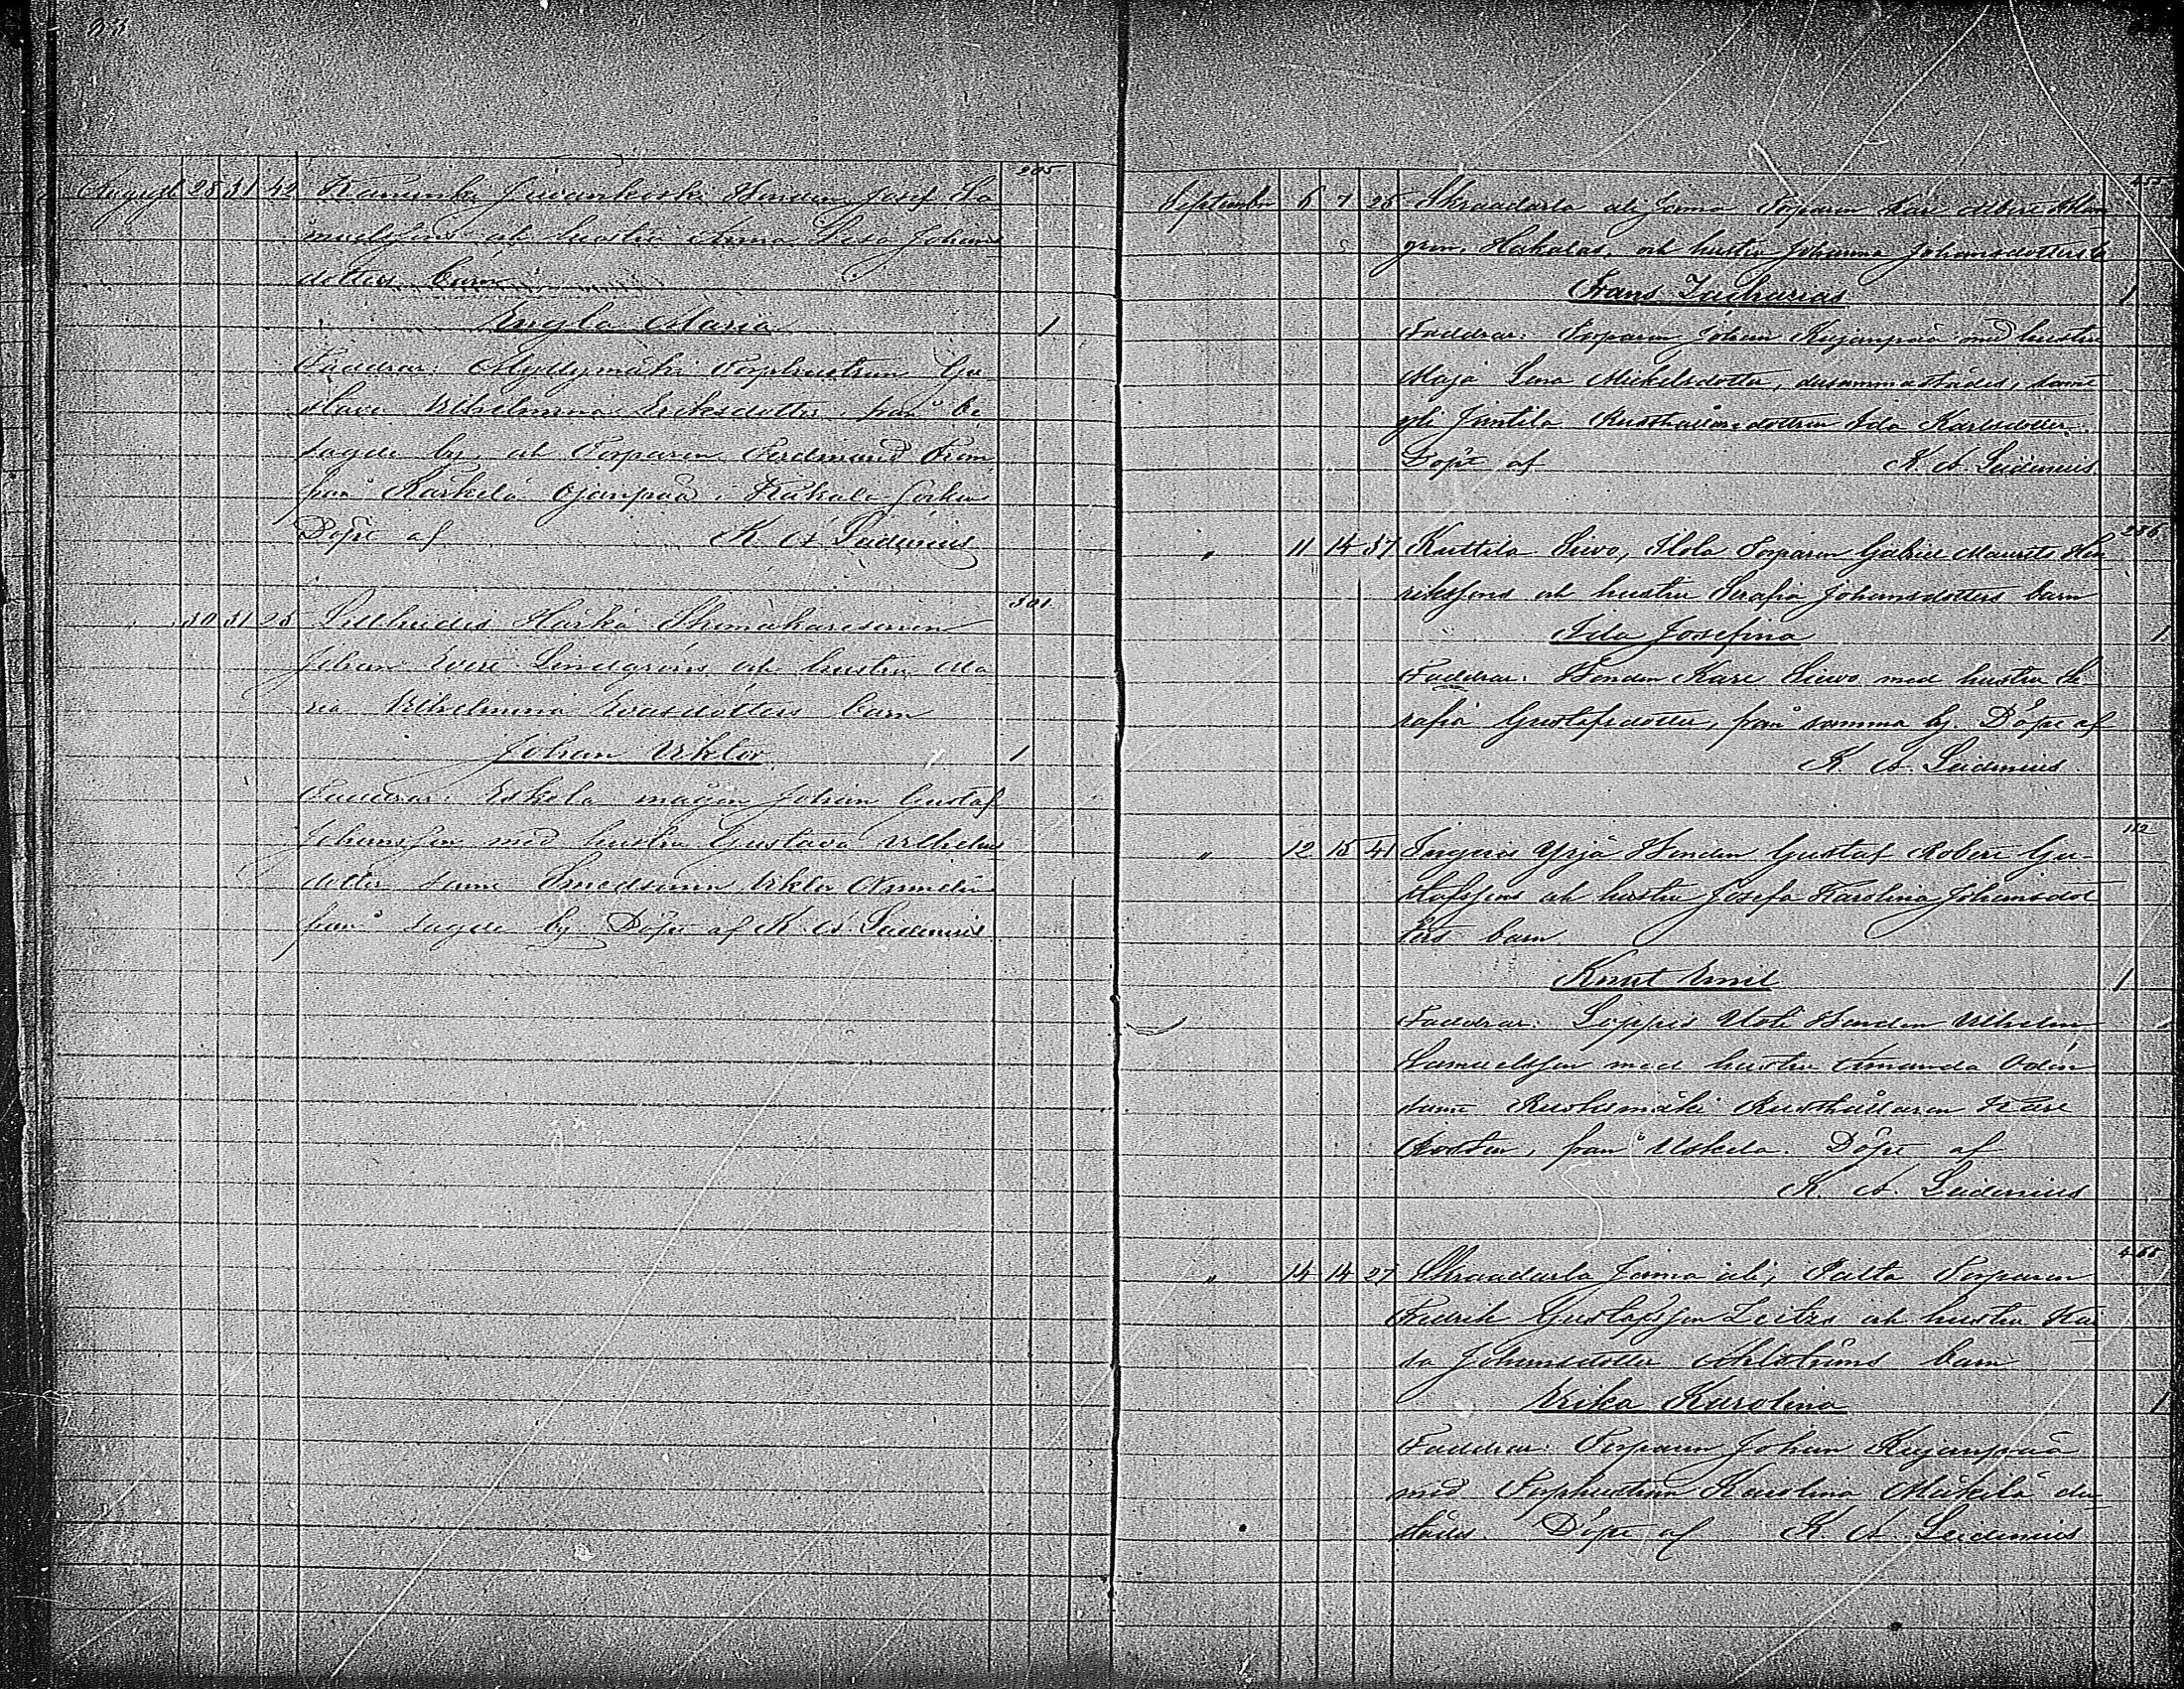 205
August 28 31 42 Bonden Josef Sa
muelssons och hustru Anna Lisa Johans
dotters barn
Engla Maria 1
Faddrar: Myllymäki Torphustrun Gu
stava Vilhelmina Eriksdotter från be
sagde by, och Torparen Ferdinand
från Karkela Ojanpää i
Döpt af K. A. Leidenius
301
30 31 25 Härkä Skomakaresonen
Johan Evert Lindgrens och hustru Ma
ria Vilhelmina Evasdotters barn
Johan Viktor 1
Faddrar: Eskola mågen Johan Gustaf
Johansson med hustru Gustava Vilhelms
dotter samt Smedsonen Viktor
från sagde by Döpt af K. A. Leidenius
September 6 7 26 Skraadarla ali Jama Torparen Karl Albert
gren, Hakalas, och hustru Johanna Johansdotters b
Frans Zacharias 1
Faddrar: Torparen Johan Kujanpää med hustru
Maja Lena Mickelsdotter, dersammastädes, samt
yli Jentilä Rusthållaredottren Ida Karlsdotter.
Döpt af K. A. Leidenius
236
" 11 14 37 Kuttila Sievo, Ilola Torparen Gabriel Maurits Hen
rikssons och hustru Serafia Johansdotters barn
Ida Josefina 1
Faddrar: Bonden Karl Sievo med hustru Se
rafia Gustafsdotter, från samma by. Döpt af
K. A. Leidenius
112
" 12 15 41 Yrjä Bonden Gustaf Robert Gu-
stafssons och hustru Josefa Karolina Johansdot
ters barn
Knut Emil 1
Faddrar: Loppis Uoti Bonden Vilhelm
Samuelsson med hustru Amanda Odén
samt Ruohismäki Rusthållaren Karl
från Uskela. Döpt af
K. A. Leidenius
" 14 14 27 Skraadarla Jama ali, Torparen
Fredrik Gustafsson Leitzs och hustru Kai
sa Johansdotter Ahlströms barn
Erika Karolina 1
Faddrar: Torparen Johan Kujanpää
med Torphustrun Karolina Mäkilä der
städes. Döpt af K. A. Leidenius